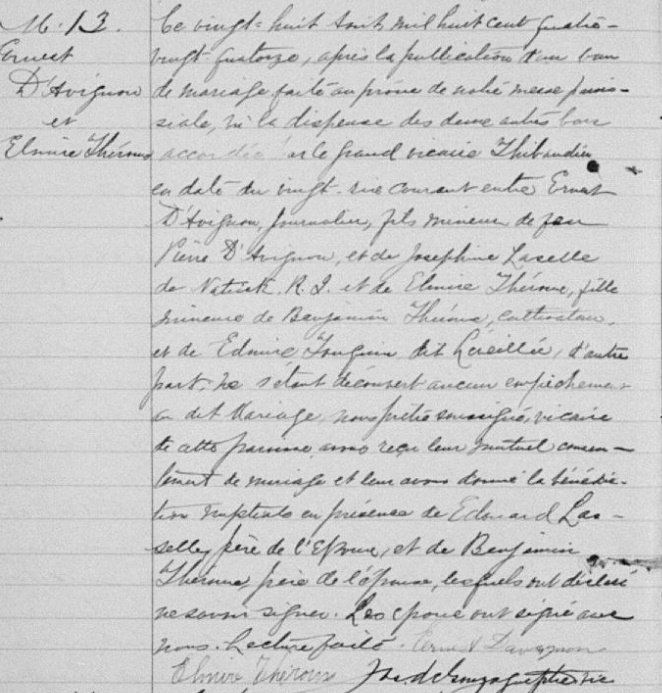 M. 13.
Ernest
D'Avignon
et
Elmire Théroux
Ce vingt-huit Août mil huit cent quatre-
vingt-quatorze, après la publication d'un ban
de mariage faite au prône de notre messe parois-
siale, vu la dispense des deux autres bans
accordée par le grand vicaire Thibaudier
en date du vingt-six courant entre Ernest
D'Avignon, journalier, fils mineur de feu
Pierre D'Avignon, et de Josephine Laselle
de Natick R. I. et de Elmire Théroux, fille
mineure de Benjamin Théroux, cultivateur,
et de Edmire dit Léveillée, d'autre
part; ne s'étant découvert aucun empêchement
au dit Mariage, nous prêtre soussigné, vicaire
de cette paroisse avons reçu leur mutuel consen-
tement de mariage et leur avons donné la bénédic-
tion nuptiale en présence de Edouard Las-
selle, père de l'Epoux, et de Benjamin
Théroux, père de l'épouse, lesquels ont déclaré
ne savoir signer. Les époux ont signé avec
nous. Lecture faite. Ernest Davignon
Elmire Théroux ptre vic